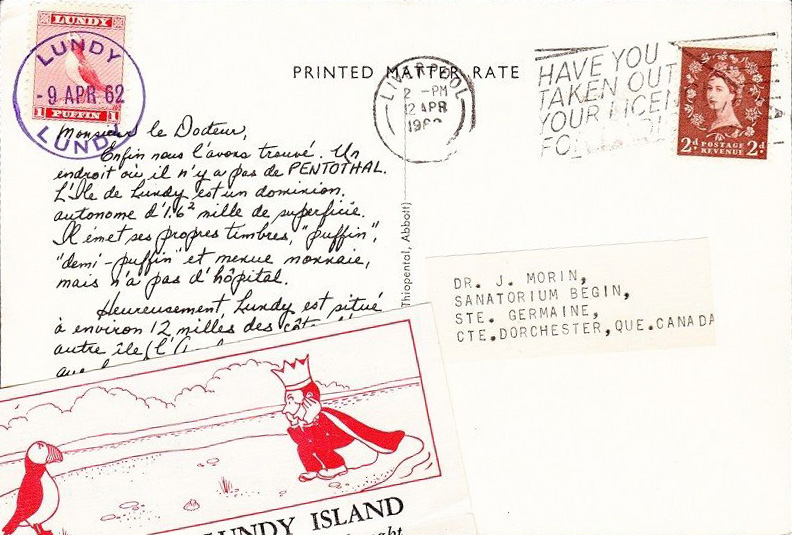 LUNDY
LUNDY
- 9 APR 62
1 PUFFIN 1
LUNDY
PRINTED MATTER RATE
LIVERPOOL
2 - PM
12 APR
HAVE YOU
TAKEN OUT
YOUR LICEN
2d POSTAGE REVENUE 2d
Monsieur le Docteur,
Enfin nous l'avons trouvé. Un
endroit où il n'y a pas de PENTOTHAL.
L'île de Lundy est un dominion
autonome d'1.6² mille de superficie.
Il émet ses propres timbres, "puffin",
"demi-puffin" et menue monnaie,
mais n'a pas d'hôpital.
Heureusement, Lundy est situé
à environ 12 milles des
autre île
Thiopental, Abbott)
DR. J. MORIN,
SANATORIUM BEGIN,
STE. GERMAINE,
CTE.DORCHESTER,QUE.CANADA
LUNDY ISLAND